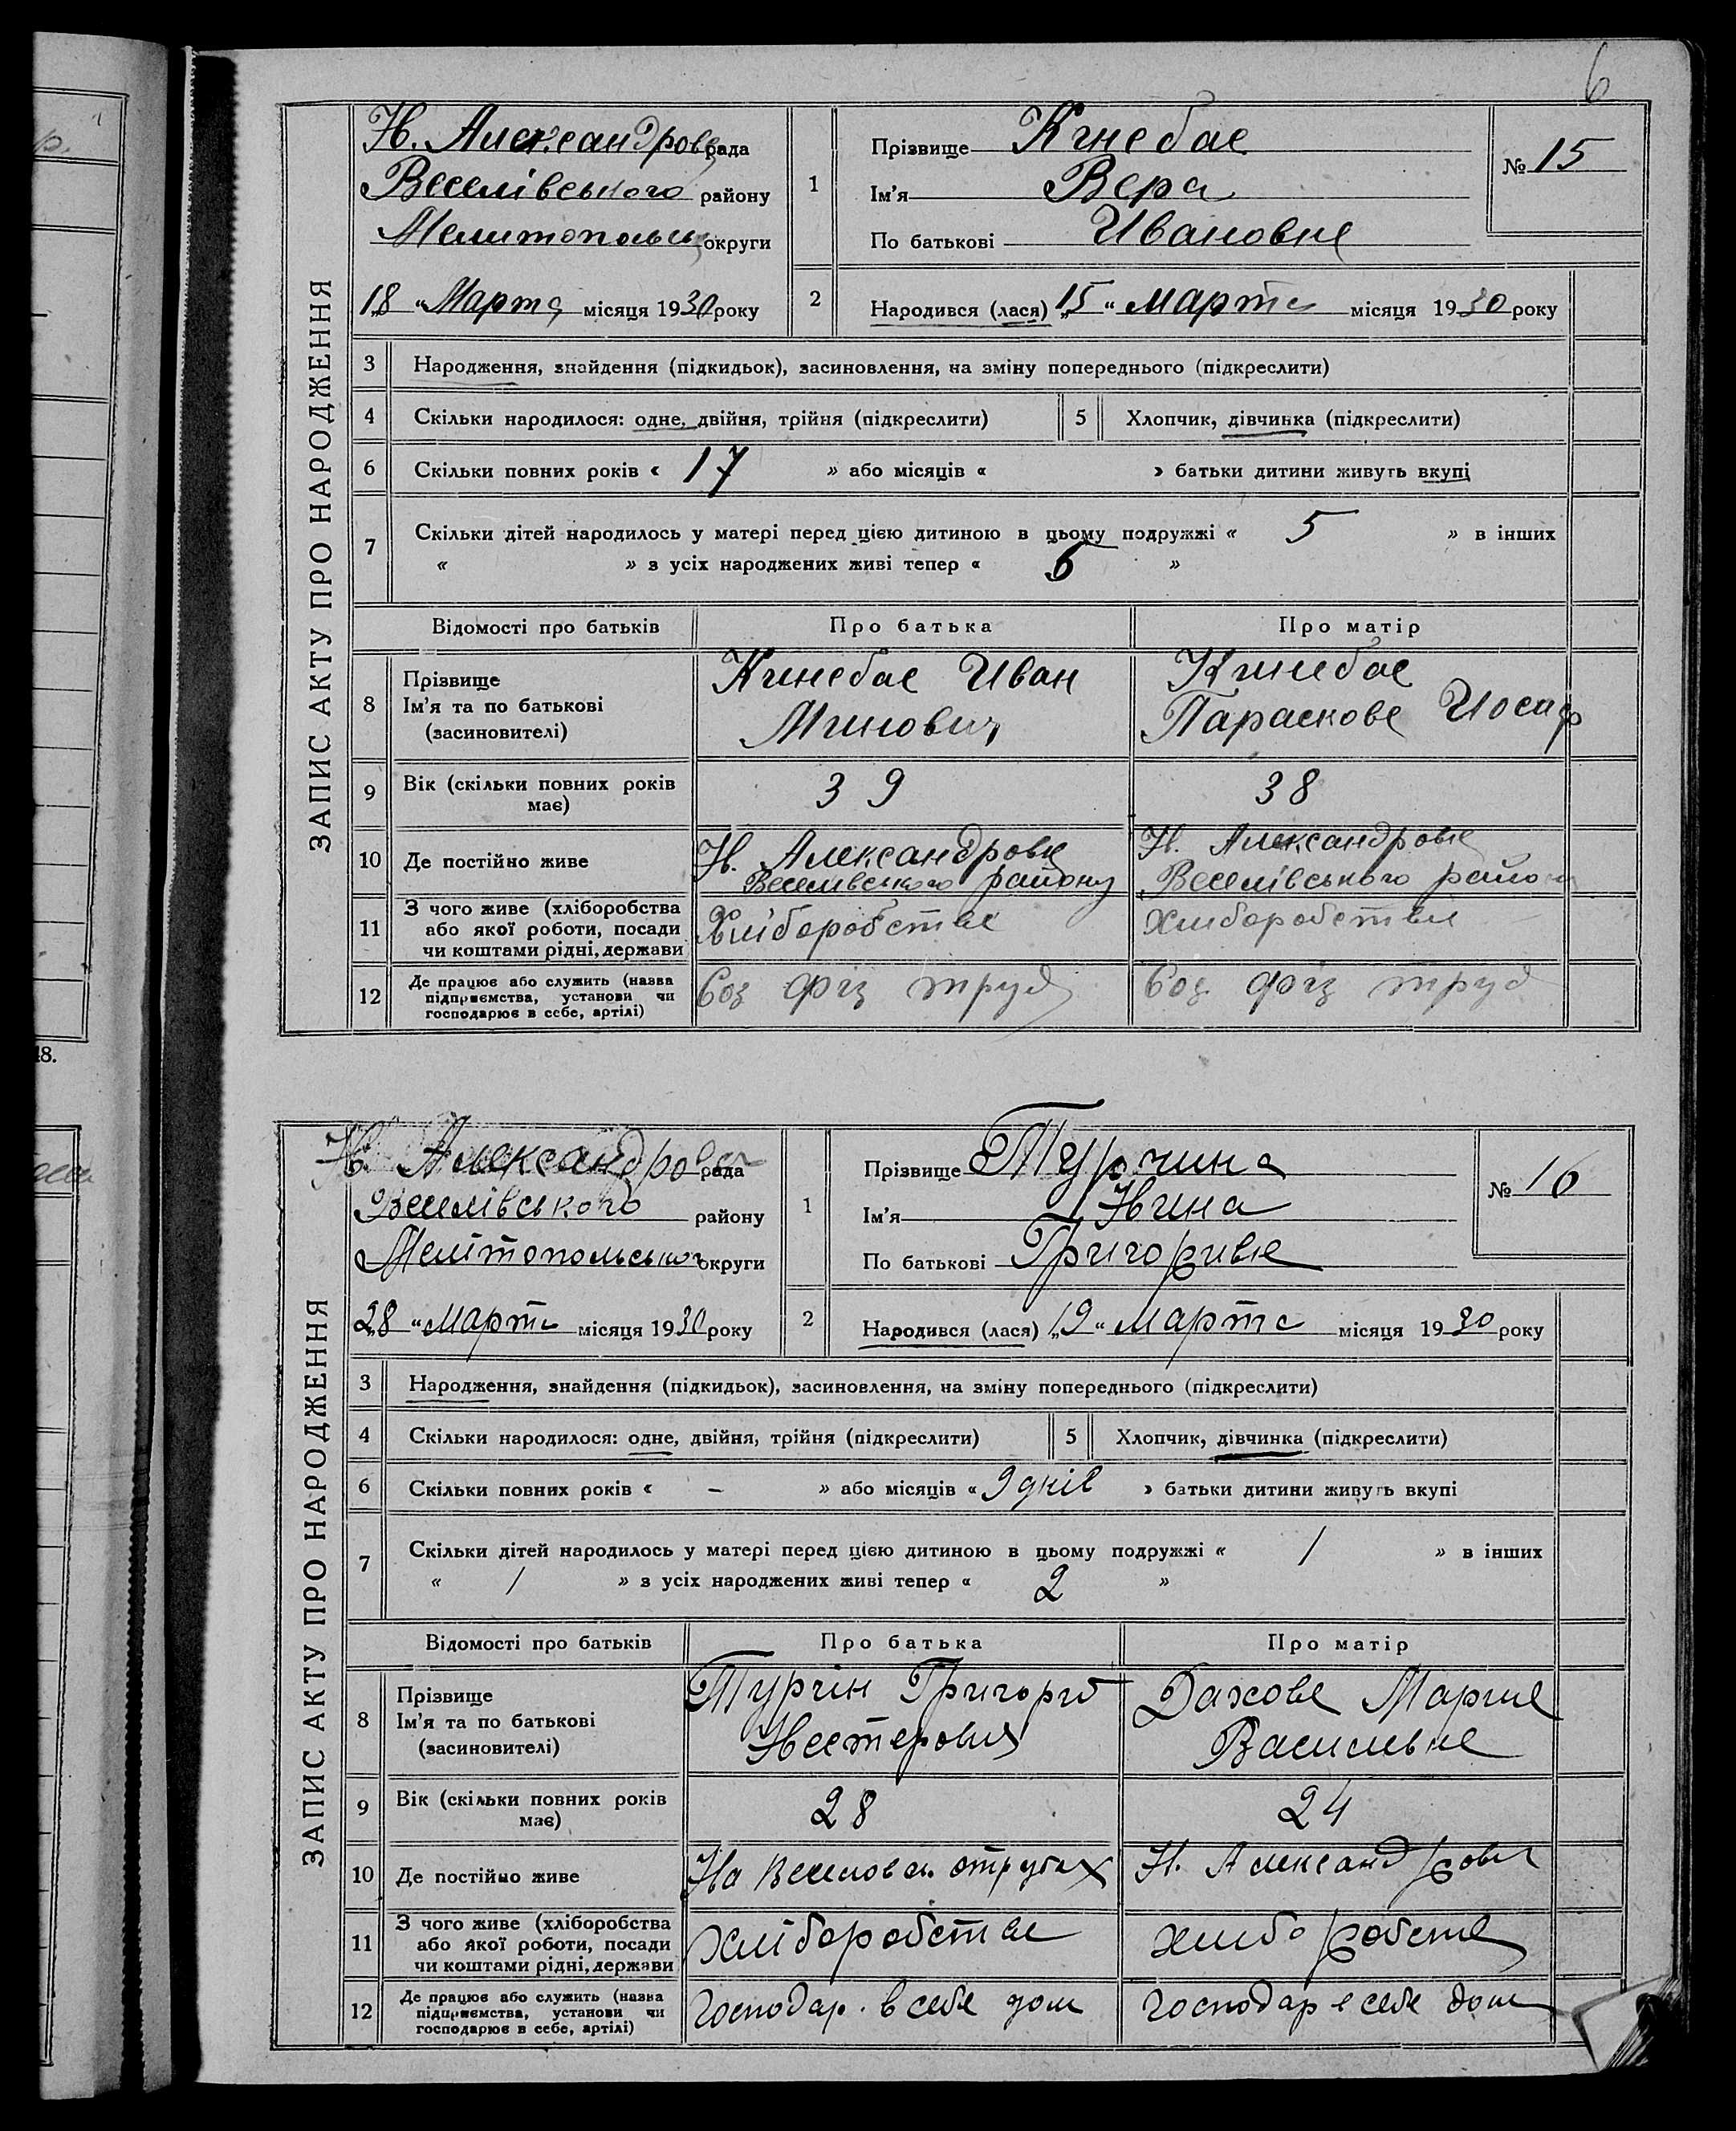 6
ЗАПИС АКТУ ПРО НАРОДЖЕННЯ
Н. Александровка рада
Веселівського району
Мелитопольськ округи
„18“ Марта місяця 1930 року
1
Прізвище
Ім'я Вера
По батькові Ивановна
№ 15
2
Народився (лася) „15“ Марта місяця 1930 року
3 Народження, знайдення (підкидьок), засиновлення, на зміну попереднього (підкреслити)
4 Скільки народилося: одне, двійня, трійня (підкреслити) 5 Хлопчик, дівчинка (підкреслити)
6 Скільки повних років « 17 » або місяців « » батьки дитини живуть вкупі
7 Скільки дітей народилось у матері перед цією дитиною в цьому подружжі « 5 » в інших
« » з усіх народжених живі тепер « »
Відомості про батьків Про батька Про матір
8 Прізвище
Ім'я та по батькові
(засиновителі)
Иван
Параскова Иосиф
9 Вік (скільки повних років має) 39 38
10 Де постійно живе
Н. Александровка
Веселівського району
Н. Александровка
Веселівського району
11 З чого живе (хліборобства
або якої роботи, посади
чи коштами рідні, держави
Хліборобства
Хліборобства
12 Де працює або служить (назва
підприємства, установи чи
господарює в себе, артілі)
Соз физ труд
Соз физ труд
48.
ЗАПИС АКТУ ПРО НАРОДЖЕННЯ
Н. Александровка рада
Веселівського району
Мелітопольської округи
„28“ Марта місяця 1930 року
1
Прізвище Турчина
Ім'я Нина
По батькові Григоривна
№ 16
2
Народився (лася) „19“ Марта місяця 1930 року
3 Народження, знайдення (підкидьок), засиновлення, на зміну попереднього (підкреслити)
4 Скільки народилося: одне, двійня, трійня (підкреслити) 5 Хлопчик, дівчинка (підкреслити)
6 Скільки повних років « – » або місяців « 9 днів » батьки дитини живуть вкупі
7 Скільки дітей народилось у матері перед цією дитиною в цьому подружжі « 1 » в інших
« 1 » з усіх народжених живі тепер « 2 »
Відомості про батьків Про батька Про матір
8 Прізвище
Ім'я та по батькові
(засиновителі)
Турчін Григорій
Нестерович
Дахова Мария
Васильвна
9 Вік (скільки повних років має) 28 24
10 Де постійно живе
На Веселовск. отрубах
Н. Александровка
11 З чого живе (хліборобства
або якої роботи, посади
чи коштами рідні, держави
Хліборобства
хлиборобства
12 Де працює або служить (назва
підприємства, установи чи
господарює в себе, артілі)
Господар. в себе дом
Господар в себе дом